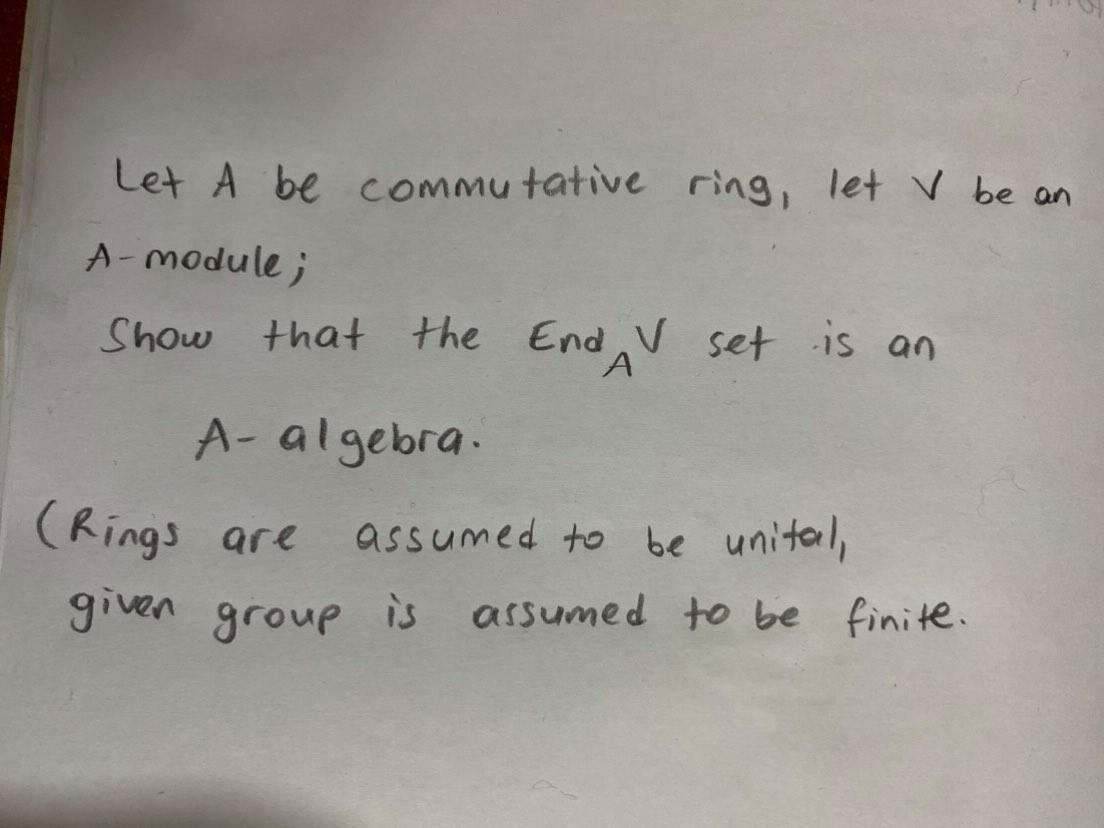 Let A be commutative ring, let V be an
A-module;
Show that the End_A V set is an
A- algebra.
(Rings are assumed to be unital,
given group is assumed to be finite.